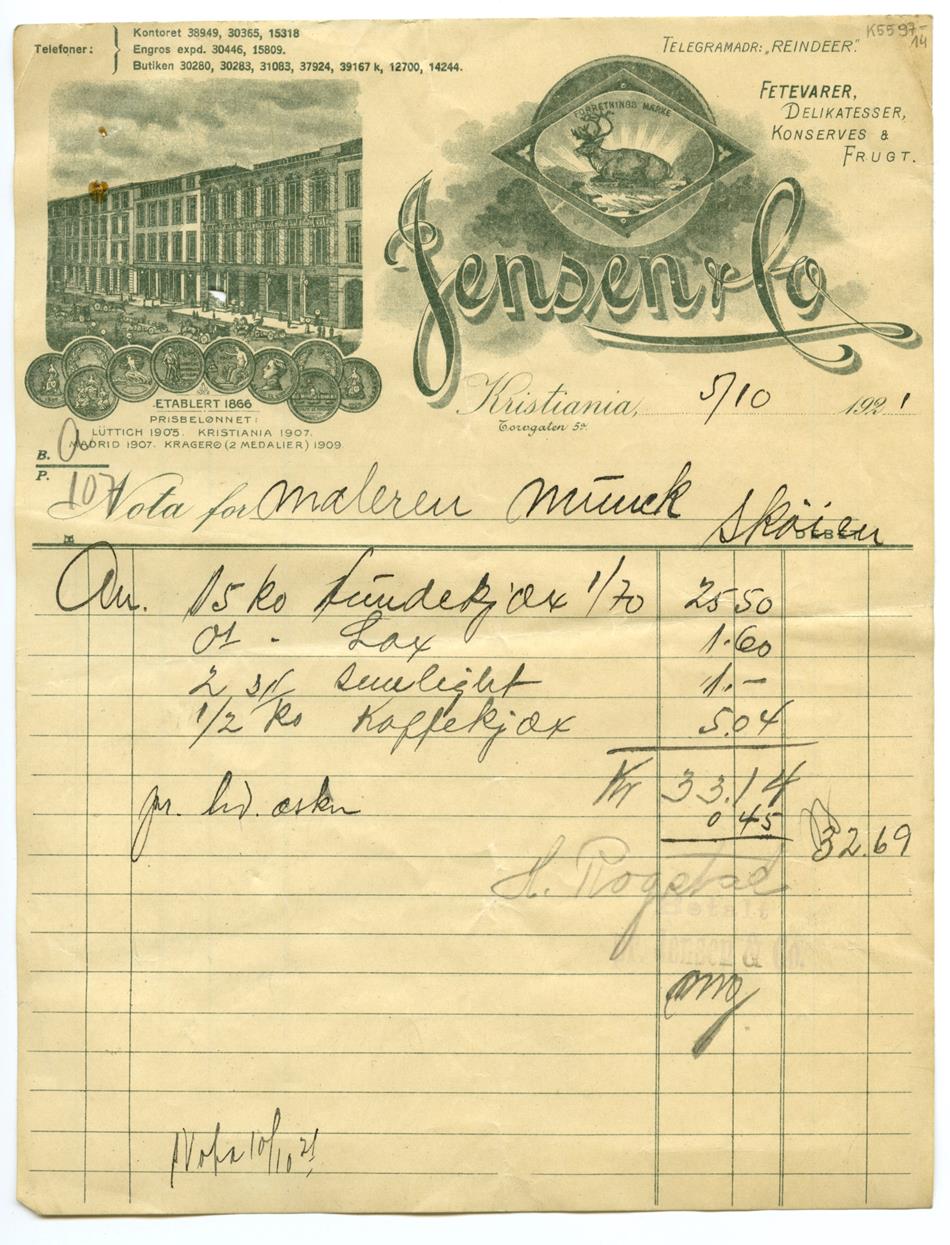 K5597-14
Telefoner:
Kontoret 38949, 30365, 15318
Engros expd. 30446, 15809.
Butiken 30280, 30283, 31083, 37924, 39167 k, 12700, 14244.
TELEGRAMADR: „REINDEER."
FORRETNINGS MÆRKE
FETEVARER,
DELIKATESSER,
KONSERVES &
FRUGT.
Jensen & Co
ETABLERT 1866
PRISBELØNNET:
LÜTTICH 1905. KRISTIANIA 1907.
MADRID 1907. KRAGERØ (2 MEDALIER) 1909.
Kristiania, 5/10 1921
Torvgaten 5a
B.
P. 107
Nota for maleren Munck Skøien
DEBET
An. 15 ko hundekjæx 1/70 25 50
01 - Lax 1.60
2 st sunlight 1.-
1/2 ko Kaffekjæx 5.04
Kr 33.14
0 45
32.69
pr.
H. Rogstad
Betalt
Jensen & Co.
10/10 21